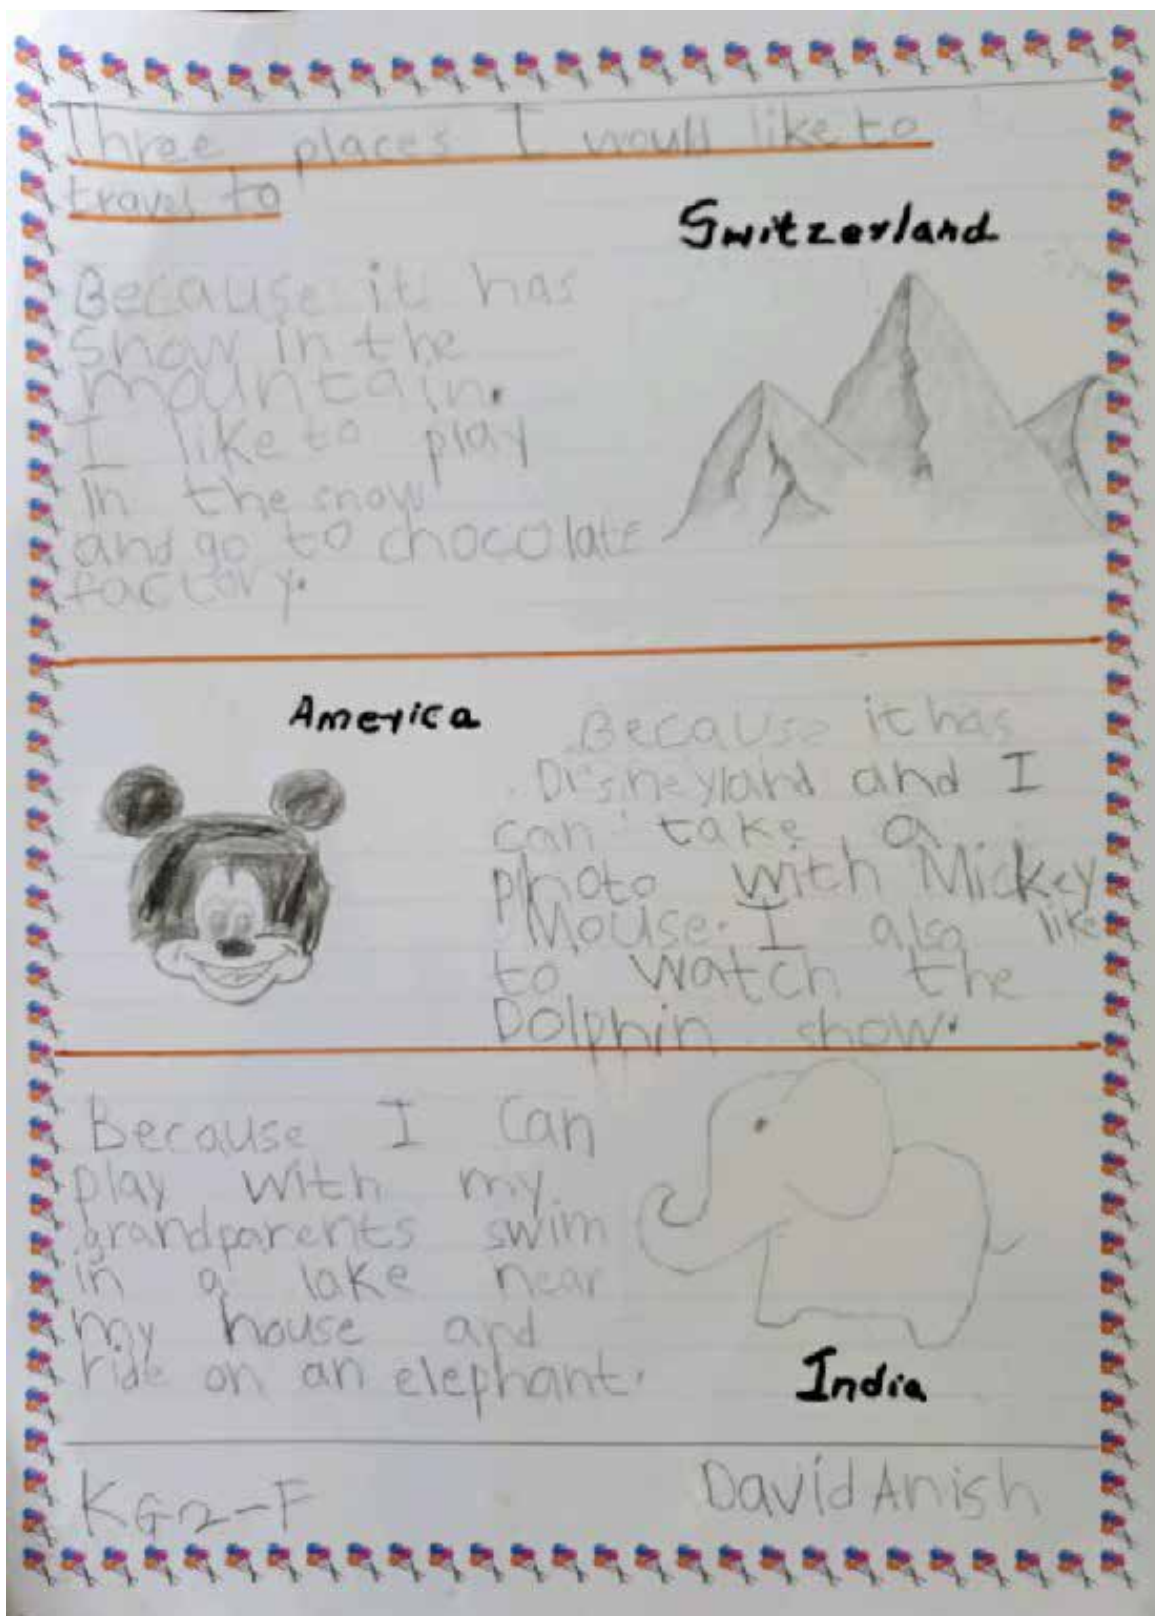 Three places I would like to
travel to
Switzerland
Because it has
snow in the
mountain.
I like to play
in the snow
and go to chocolate
factory.
America
Because it has
Disneyland and I
can take a
photo with Mickey
Mouse. I also like
to watch the
Dolphin show.
Because I can
play with my
grandparents swim
in a lake near
my house and
ride on an elephant.
India
KG2-F
David Anish